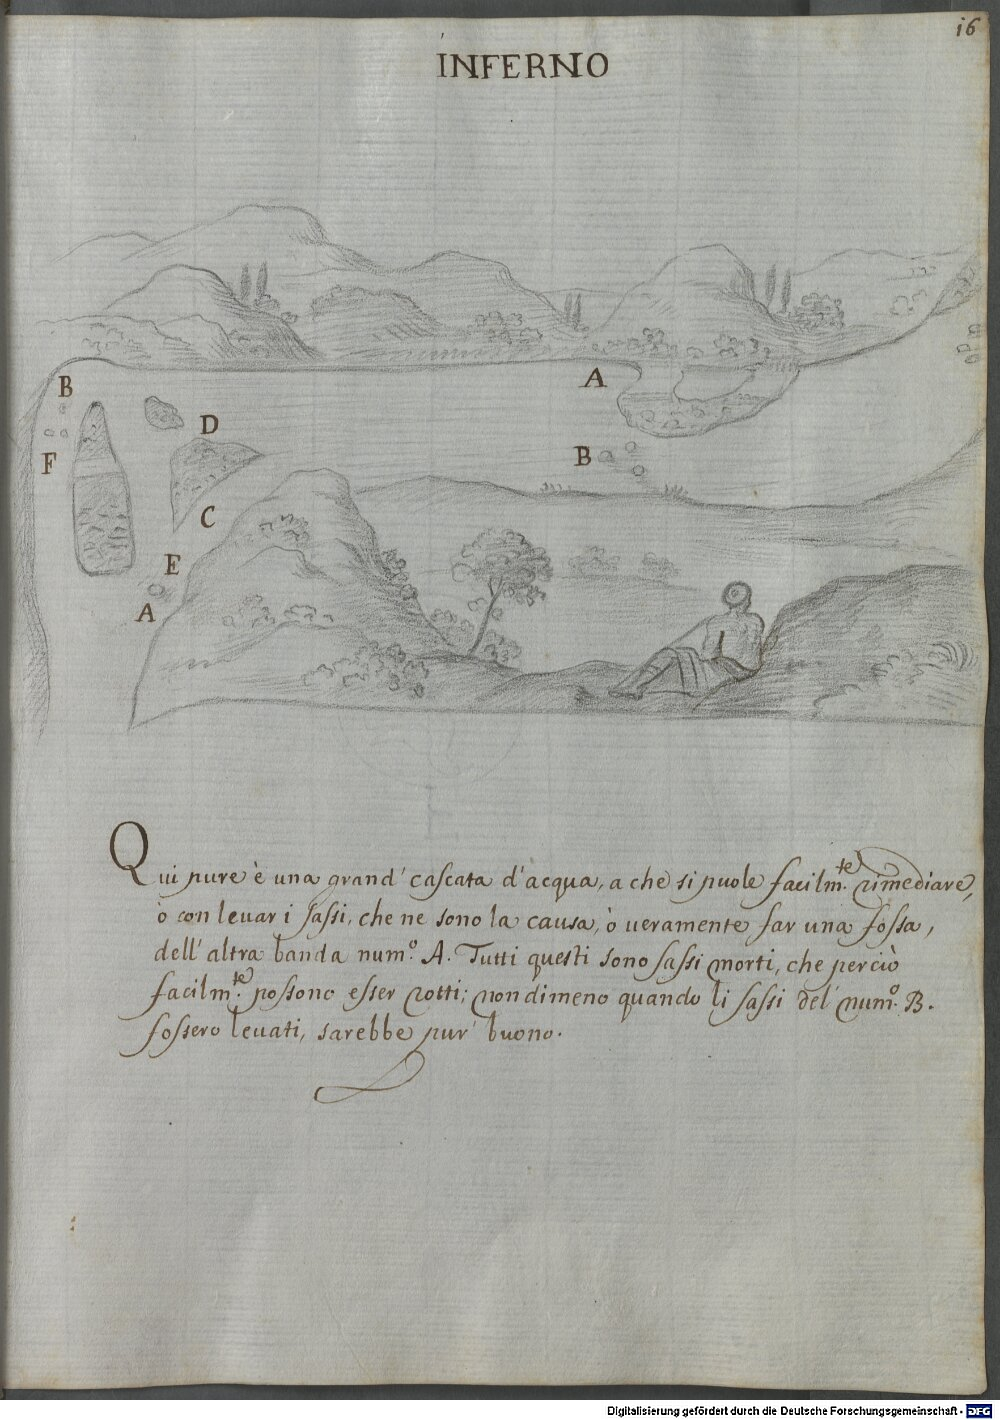 i6
INFERNO
B
A
D
B
F
C
E
A
Qui pure è una grand' cascata d'acqua, a che si puole facilm.te rimediare,
ò con levar i sassi, che ne sono la causa, ò veramente far una fossa,
dell' altra banda num.o A. Tutti questi sono sassi morti, che perciò
facilm.te possono esser rotti; nondimeno quando li sassi del num.o B.
fossero levati, sarebbe pur' buono.
Digitalisierung gefördert durch die Deutsche Forschungsgemeinschaft - DFG